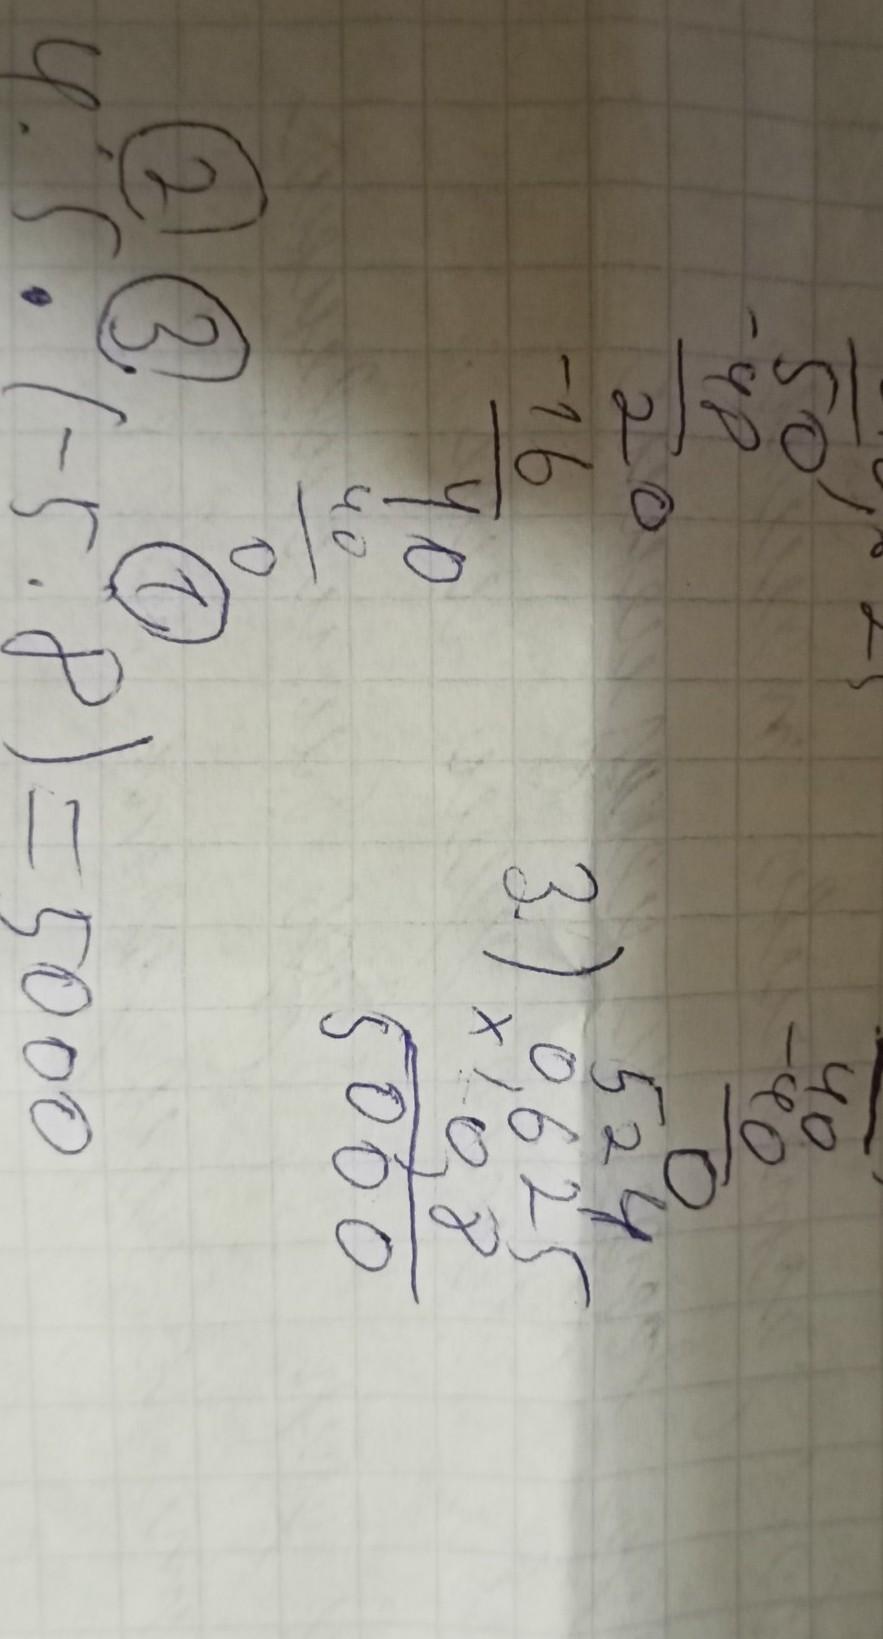 50 40
-48 -40
20 0
524
-16 3) 0,625
40 × 0,8
40 5000
0
② ③ ①
4:5·(-5.8)=5000